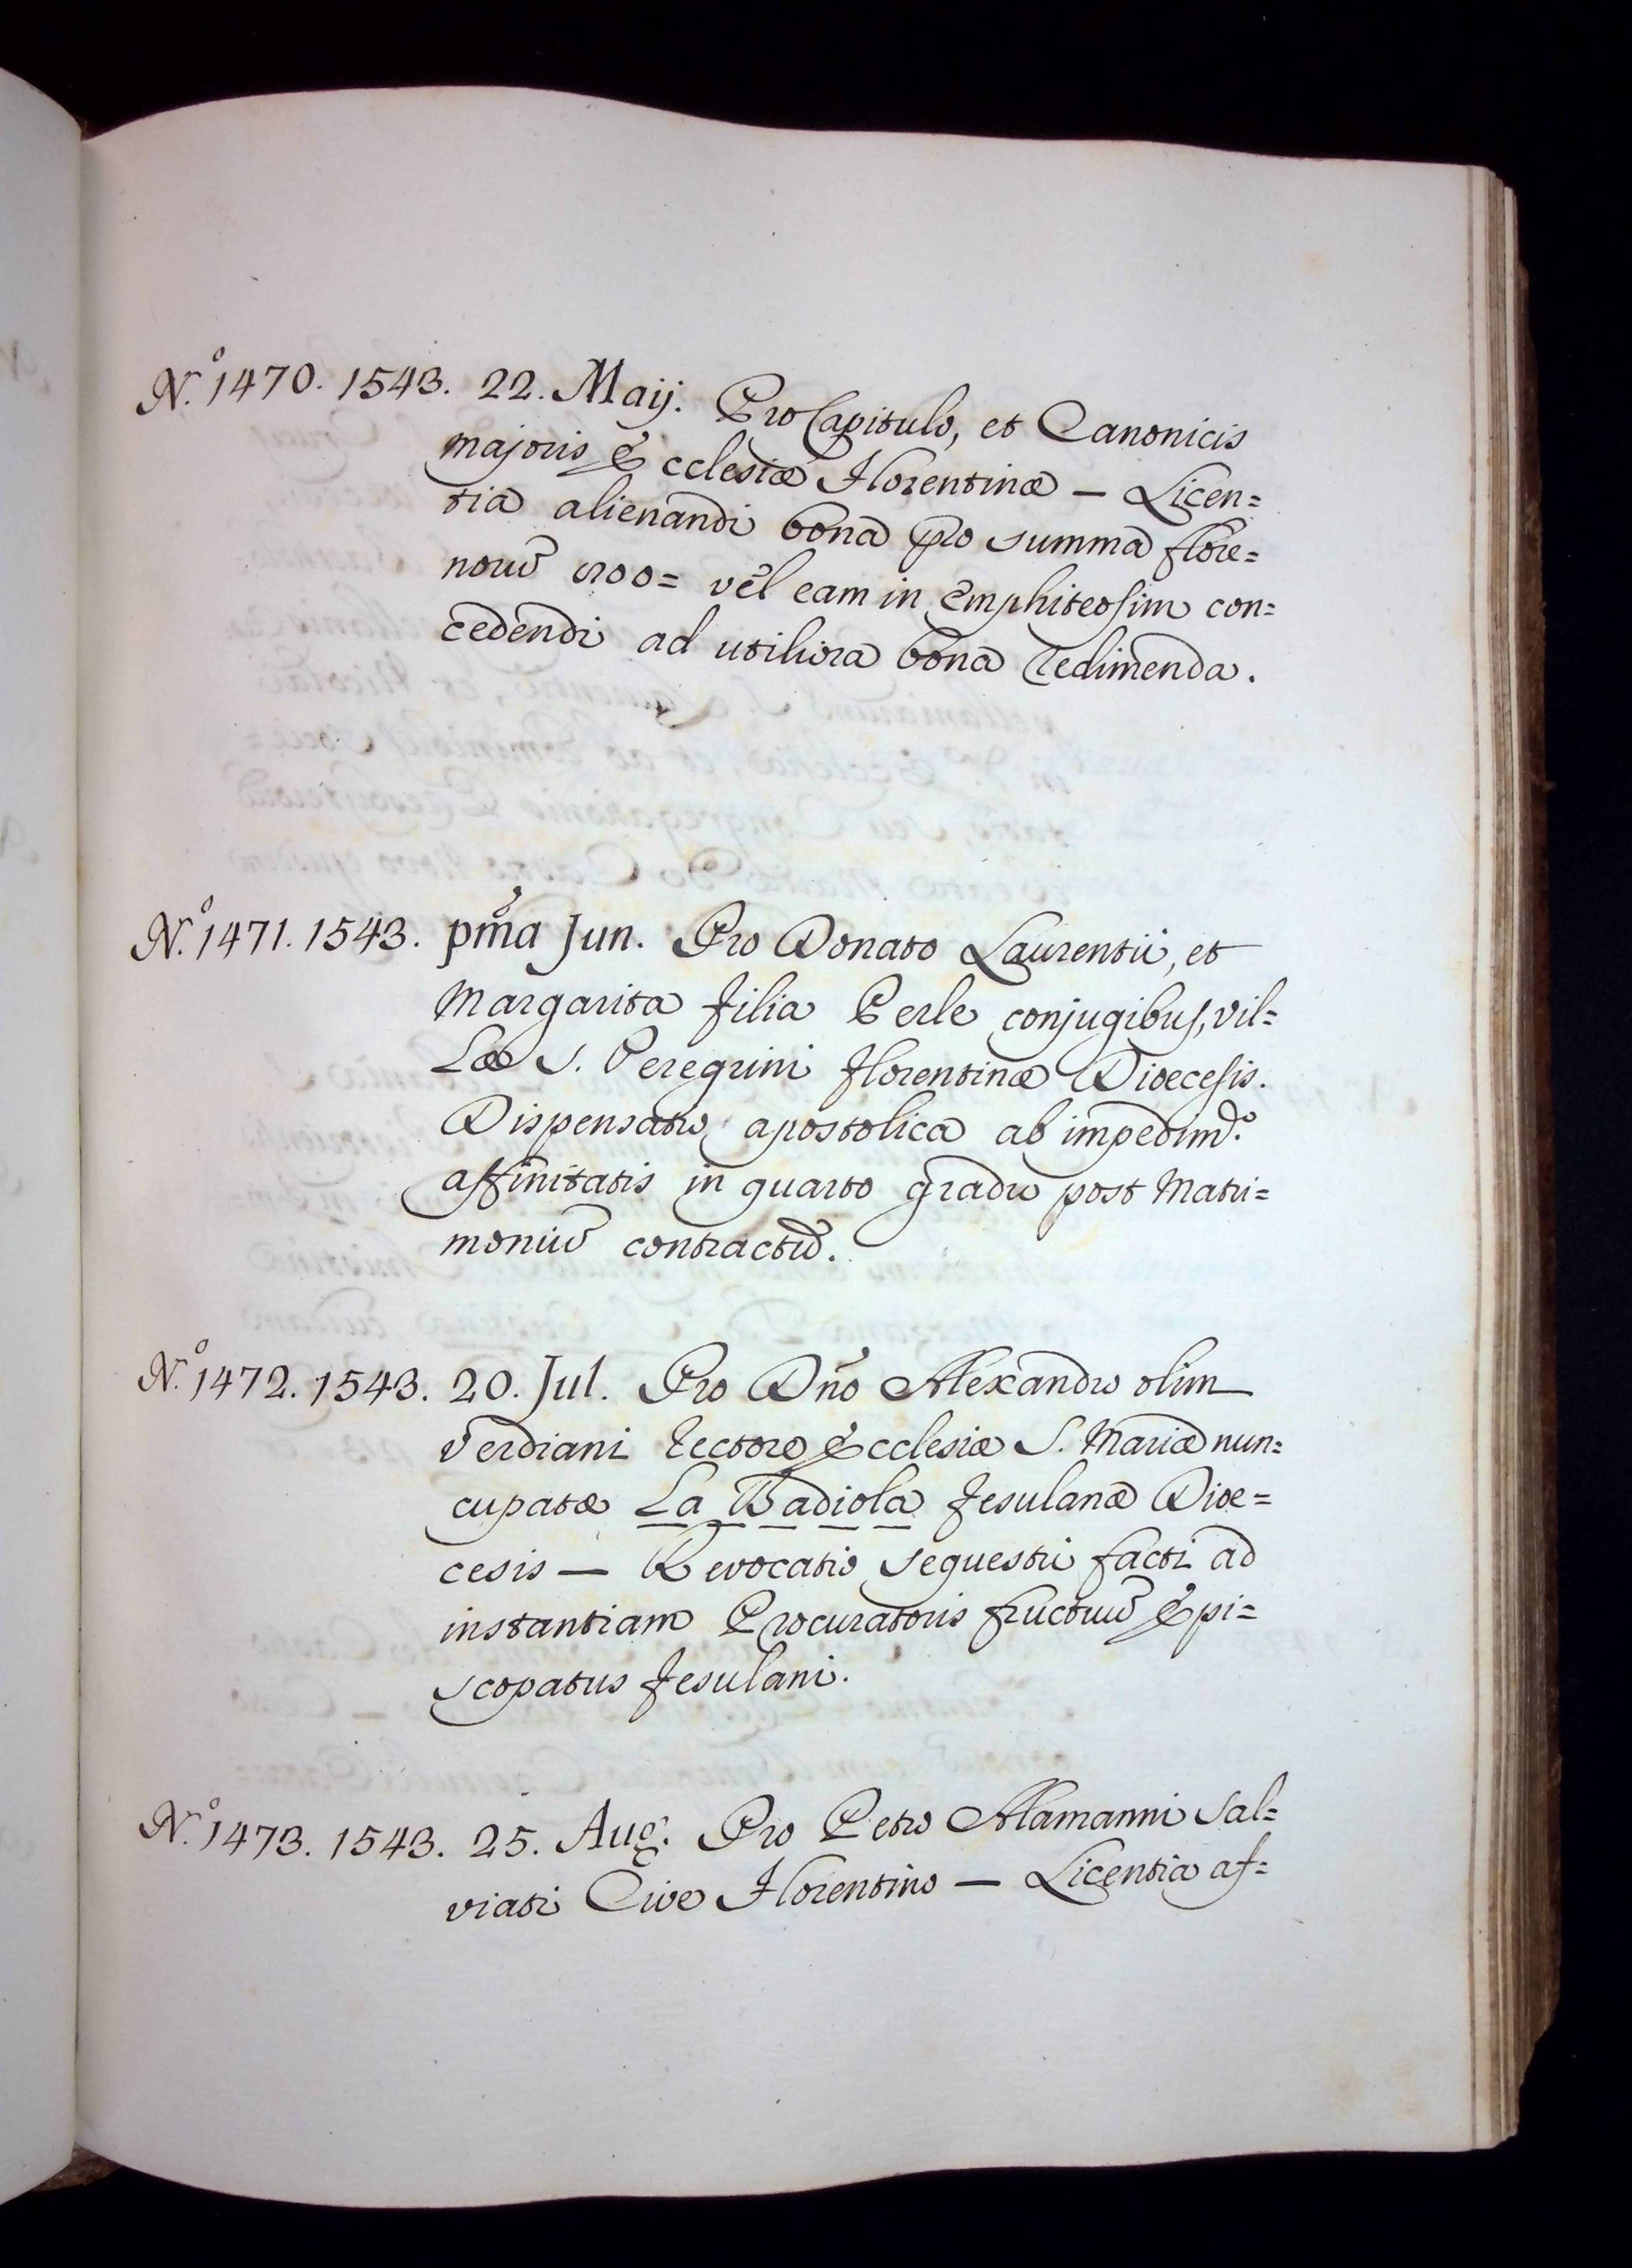 N.º 1470. 1543. 22. Maij. Pro Capitulo, et Canonicis
majoris Ecclesiæ Florentinæ — Licen=
tia alienandi bona pro summa flore=
norũ 900= vel eam in Emphiteosim con=
cedendi ad utiliora bona redimenda.
N.º 1471. 1543. pm̃a Jun. Pro Donato Laurentii, et
Margarita filia Perle conjugibus, vil=
læ S. Peregrini Florentinæ Dioecesis.
Dispensatio apostolica ab impedim.º
affinitatis in quarto gradu post Matri=
moniũ contractũ.
N.º 1472. 1543. 20. Jul. Pro Dño Alexandro olim
Verdiani Rectore Ecclesiæ S. Mariæ nun=
cupatæ La Badiola Fesulanæ Dioe=
cesis — Revocatio sequestri facti ad
instantiam Procuratoris fructuũ Epi=
scopatus Fesulani.
N.º 1473. 1543. 25. Aug. Pro Petro Alamanni Sal=
viati Cive Florentino — Licentia af=